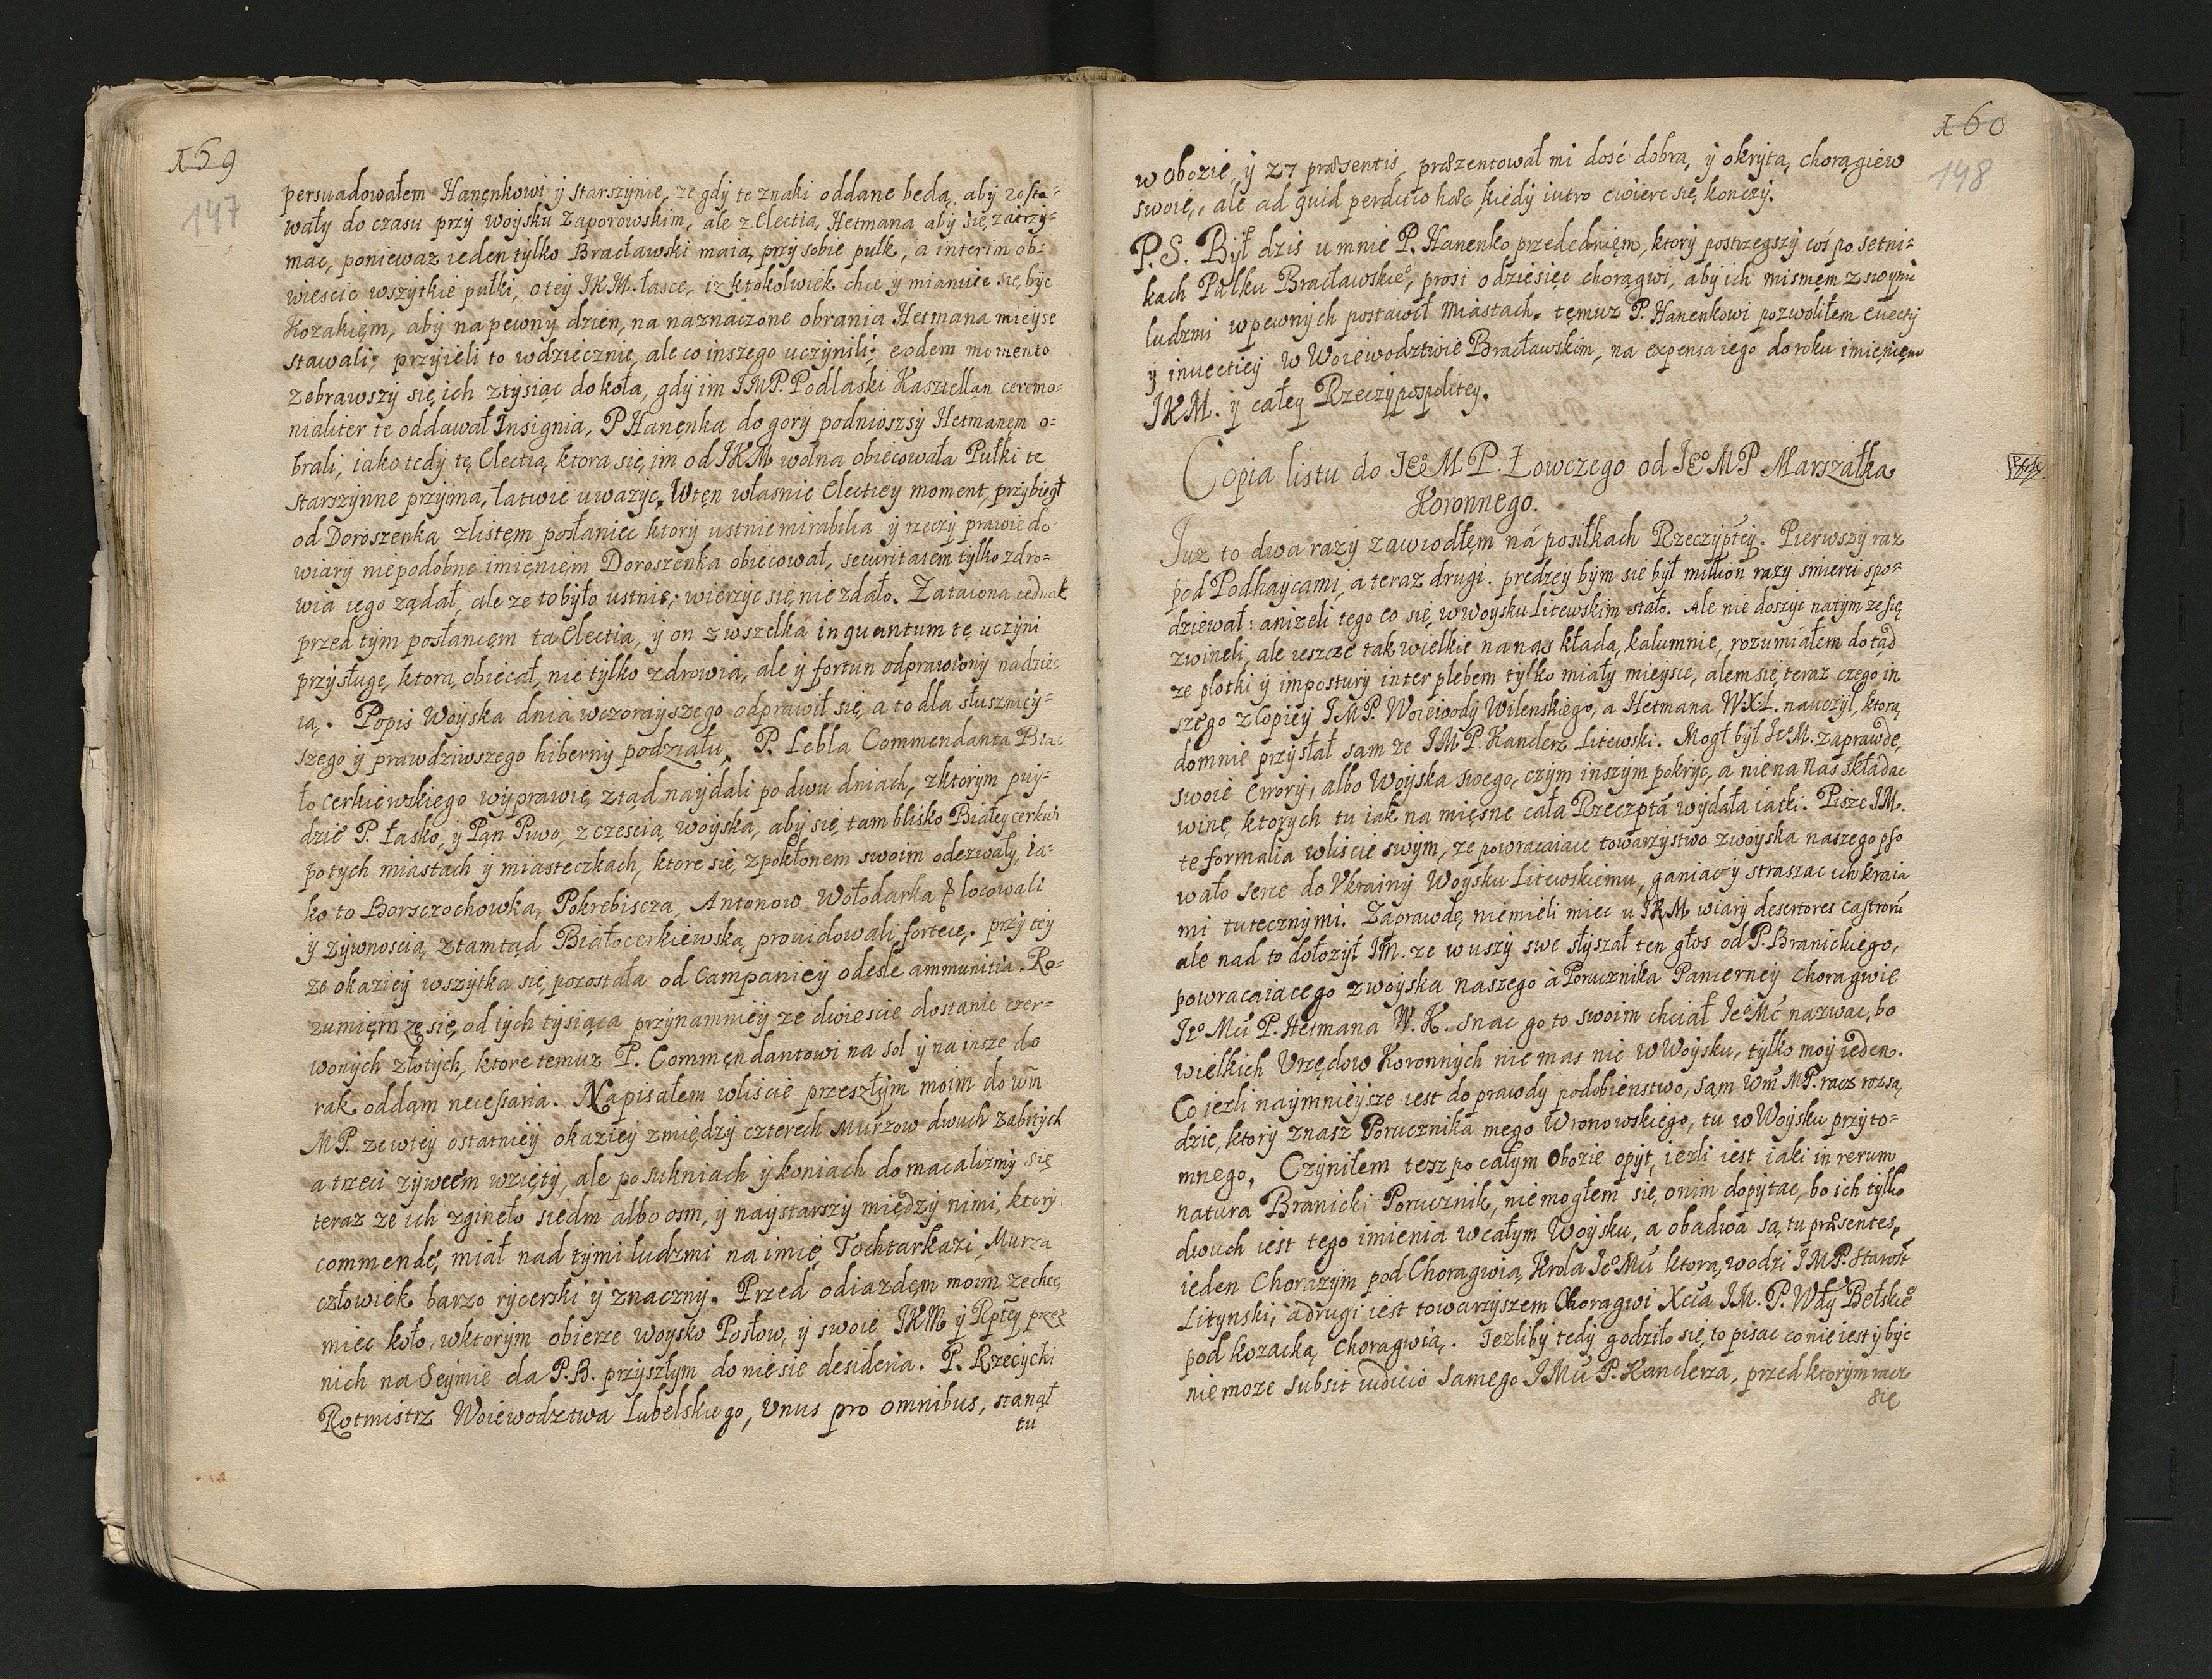 159
147
persuadowałem Hanęnkowi ÿ starszÿnie, ze gdÿ te znaki oddane bedą, aby zosta=
wałÿ do czasu przÿ woÿsku Zaporowskim, ale z Electią Hetmana abÿ się zatrzÿ=
mac, poniewaz ieden tÿlko Bracławski maią przÿ sobie pułk, a interim ob=
wiescic wszÿtkie pułki, o teÿ JKM. łasce, iz ktokolwiek chce ÿ mianuie się bÿc
Kozakięm, abÿ na pewnÿ dzien, na naznaczone obrania Hetmana mieÿsc
stawali; przÿieli to wdziecznie, ale co inszego uczÿnili; eodem momento
zebrawszÿ się ich z tÿsiąc do koła, gdÿ im JMP. Podlaski Kasztellan ceremo=
nialiter te oddawał Insignia, P Hanęnka do gorÿ podniozsÿ Hetmanęm o=
brali, iako tedÿ tę Electią ktora się im od JKM wolna obiecowała Pułki te
starszÿnne przÿimą, łatwie uwazÿc. Wtęn własnie Electieÿ moment, przÿbiegł
od Doroszenka z listęm posłaniec ktorÿ ustnie mirabilia ÿ rzeczÿ prawie do
wiarÿ niepodobne imięnięm Doroszenka obiecował, securitatem tÿlko zdro=
wia iego ządał, ale ze to bÿło ustnie; wierzÿc się nie zdało. Zataiona iednak
przed tÿm posłancęm ta Electia, ÿ on z wszelką inquantum tę uczÿni
przÿsługę, ktorą obiecał, nie tÿlko zdrowia, ale ÿ fortun odprawionÿ nadzie=
ią. Popis Woÿska dnia wczoraÿszego odprawił się, a to dla słusznieÿ=
szego ÿ prawdziwszego hibernÿ podziału, P. Lebla Commendanta Bia=
ło cerkiewskiego wÿprawię ztąd naÿdali po dwu dniach, z ktorÿm puÿ=
dzie P. Łasko, ÿ Pąn Puwo, z czescią woÿska, abÿ się tam blisko Białeÿ cerkwi
po tÿch miastach ÿ miasteczkach, ktore się z pokłonem swoim odezwałÿ, ia=
ko to Borsczochowka, Pokrebiscza, Antonow Wołodarka & locowali
ÿ zÿwnoscią ztamtąd Białocerkiewską prouidowali fortecę. przÿ teÿ
ze okazieÿ wszÿtka się pozostała od Campanieÿ odesle ammunitia. Ro=
zumięm ze się od tÿch tÿsiąca przÿnamnieÿ ze dwiescie dostanie czer=
wonÿch złotÿch, ktore temuz P. Commęndantowi na sol ÿ na insze do
rak oddąm necessaria. Napisałem w liscie przeszłÿm moim do wm̃
MP. ze wteÿ ostatnieÿ okazieÿ zmiędzÿ czterech Murzow dwuch zabitÿch
a trzeci zÿwcem wzięty, ale po sukniach ÿ koniach domacalizmÿ się
teraz ze ich zginęło siedm albo osm, ÿ naÿstarszÿ międzÿ nimi, ktorÿ
commendę, miał nad tÿmi ludzmi na imię Tochtarkazi, Murza
człowiek barzo rÿcerski ÿ znacznÿ. Przed odiazdęm moim zechcę
miec koło, wktorÿm obierze woÿsko Posłow, ÿ swoie JKM ÿ Rptey przez
nich na Seÿmie da P.B. przÿszłÿm doniesie desideria. P. Rzecÿcki
Rotmistrz Woiewodztwa Lubelskiego, Unus pro omnibus, stanął
tu
160
148
w obozie, ÿ 27 præsentis, præzentował mi dosć dobrą, ÿ okrÿtą, chorągiew
swoię, ale ad quid perditio hæc, kiedÿ iutro cwierc się konczÿ.
P.S. Bÿł dzis u mnie P. Hanenko przedednięm, ktorÿ postrzegszÿ coś po setni=
kach Pułku Bracławskie°, prosi o dziesięc chorągwi, abÿ ich mismęm z swÿmi
ludzmi w pewnÿch postawił miastach. tęmuz P. Hanenkowi pozwoliłem euectÿ
ÿ inuectieÿ w Woiewodztwie Bracławskim, na expensa iego do roku imięnięm
JKM. ÿ całeÿ Rzeczÿpospoliteÿ.
Copia listu do Je°MP. Łowczego od Je°MP Marszałka
Koronnego.
Iuz to dwa razÿ zawiodłęm ná posiłkach Rzeczÿptęÿ. Pierwszÿ raz
pod Podhaÿcami, a teraz drugi. prędzeÿ bÿm się bÿł milion razÿ smierci spo=
dziewał: anizeli tego co się w woÿsku Litewskim stało. Ale nie doszÿc natÿm ze się
zwineli, ale ieszcze tak wielkie na nas kładą kalumnie, rozumiałem dotąd
ze plotki ÿ imposturÿ inter plebem tÿlko miałÿ mieÿsce, alem się teraz czego in
szego z Copieÿ JMP. Woiewodÿ Wilenskiego, a Hetmana WXL. nauczÿł, ktorą
domnie przÿsłał sam ze JMP. Kanclerz Litewski. Mogł bÿł Je°M. zaprawdę,
swoie Errorÿ, albo Woÿska swego, czÿm inszÿm pokrÿc, a nie na nas składac
winę, ktorÿch tu iak na mięsne cała Rzeczptã wÿdała iatki. Pisze JM.
te formalia w liscie swÿm, ze powracaiące towarzÿstwo z woÿska naszego pso
wało serce do Vkrainÿ Woÿsku Litewskiemu, ganiąc ÿ straszac ich kraia
mi tutecznÿmi. Zaprawdę nie mieli miec u JKM wiarÿ desertores castrorũ
ale nad to dołozÿł JM. ze w uszÿ swe słÿszał ten głos od P. Branickiego,
powracaiacego z woÿska naszego à Porucznika Pancerneÿ choragwie
Je° Mci P. Hetmana W. K. snac go to swoim chciał JeMć nazwac, bo
wielkich Urzędow Koronnÿch niemas nic w Woÿsku, tÿlko moÿ ieden.
Co iezli naÿmnieÿsze iest do prawdÿ podobienstwo, sąm Wm̃ MP. racz rozsą
dzic, ktorÿ znasz Porucznika mego Wronowskiego, tu w Woÿsku przÿto=
mnego. Czÿniłem tesz po całÿm Obozie opÿt, iezli iest iaki in rerum
natura Branicki Porucznik, nie mogłem się onim dopÿtac, bo ich tÿlko
dwuch iest tego imienia wcałÿm Woÿsku, a obadwa są tu præsentes,
ieden Chorazÿm pod Choragwią Krola Je°Mci ktorą wodzi JMP. Starost
Litÿnski, à drugi iest towarzÿszem Choragwi Xcia JM. P. Wdÿ Bełskie°
pod kozacką choragwią. Iezlibÿ tedÿ godziło się to pisac co nie iest ÿ bÿc
nie moze subsit iudicio samego JMci P. Kanclerza, przed ktorÿm racz
się